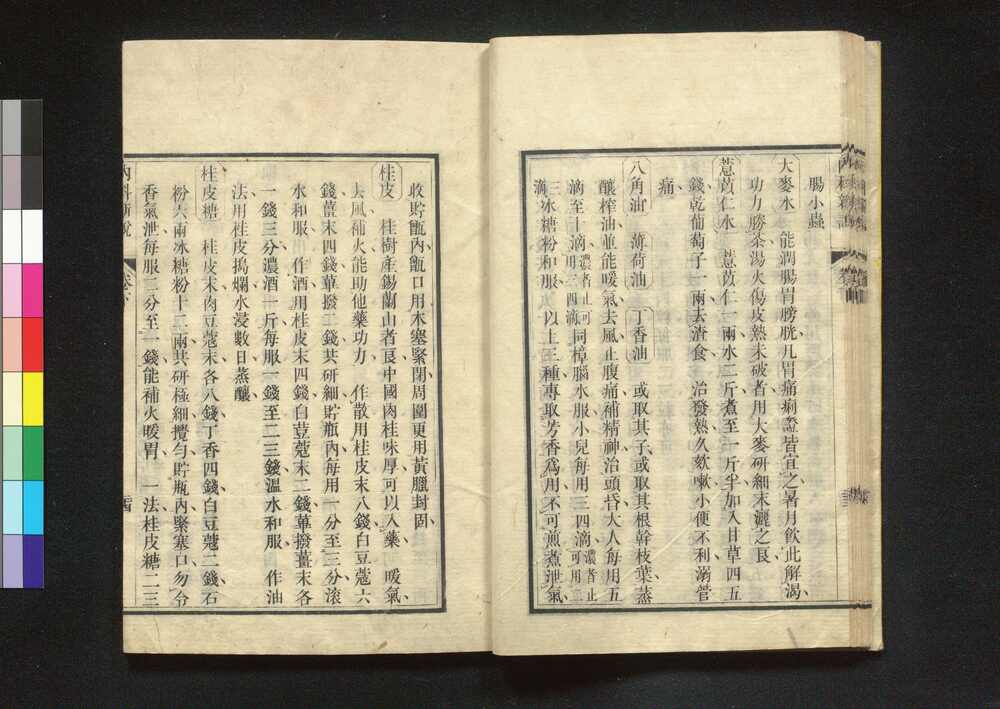 腸小蟲
大麥水　能潤腸胃膀胱凡胃痛痢證皆宜之、暑月飲此解渴、
功力勝茶、湯火傷皮熟未破者、用大麥研細末灑之良
薏苡仁水　薏苡仁一兩、水二斤、煮至一斤半、加入甘草四五
錢、乾葡萄子一兩、去渣食、　治發熱久欬嗽小便不利溺管
痛、
八角油　薄荷油　丁香油　或取其子、或取其根幹枝葉、蒸
釀榨油並能暖氣去風止腹痛補精神治頭昏、大人每用五
滴至十滴、濃者止可用三四滴同樟腦水服、小兒每用三四滴、濃者止可用二
滴三冰糖粉和服、以上三種、專取芳香爲用、不可煎煮泄氣、
收貯甑內、甑口用木塞緊閉、周圍更用黃臘封固、
桂皮　桂樹產錫蘭山者良、中國肉桂味厚可以入藥、　暖氣、
去風補火、能助他藥功力、　作散用桂皮末八錢、白豆蔻六
錢、薑末四錢、蓽撥二錢、共研細貯瓶內、每用一分至三分、滾
水和服、　作酒用桂皮末四錢、白荳蔻末二錢、蓽撥薑末各
一錢三分、濃酒一斤、每服一錢至二三錢、溫水和服、　作油
法用桂皮搗爛水浸數日蒸釀
桂皮糖　桂皮末肉豆蔻末各八錢、丁香四錢、白豆蔻二錢、石
粉六兩、冰糖粉十二兩、共研極細攪勻、貯瓶內緊塞口、勿令
香氣泄、每服二分至一錢、能補火暖胃、　一法桂皮糖二三
內科新說　卷下